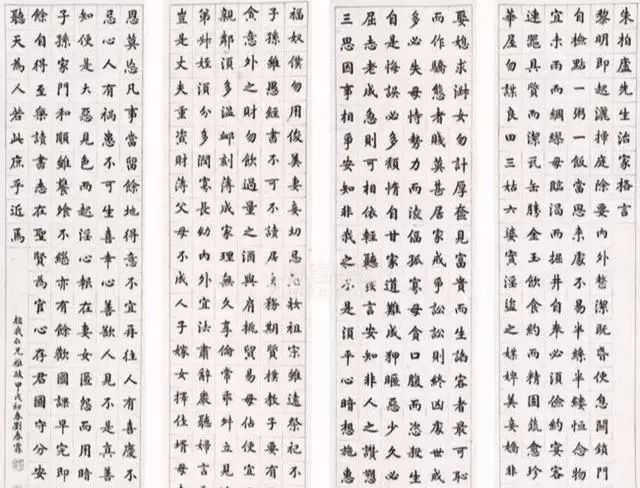 朱柏盧先生治家格言
黎明即起灑掃庭除要內外整潔既昏便息關鎖門
自檢點一粥一飯當思來處不易半絲半縷恆念物
宜未雨而綢繆毋臨渴而掘井自奉必須儉約宴
連器具質而潔瓦缶勝金玉飲食約而精園蔬愈珍
華屋勿謀良田三姑六婆實淫盜之媒婢美妾嬌非
娶媳求淑女勿計厚奩見富貴而生諂容者最可恥
而作驕態者賤莫甚居家戒爭訟訟則終凶處世戒
多必失毋恃勢力而凌偪孤寡毋貪口腹而恣殺生
自是悔誤必多頹惰自甘家道難成狎暱惡少久必
屈志老成急則可相依輕聽發言安知非人之譖愬
三思因事相爭安知非我之不是須平心暗想施惠
福奴僕勿用俊美妻妾切忌艷妝祖宗雖遠祭祀不
子孫雖愚經書不可不讀居身務期質樸教子要有
貪意外之財勿飲過量之酒與肩挑貿易毋佔便宜
親鄰須多溫卹刻薄成家理無久享倫常乖舛立見
弟叔姪須分多潤寡長幼內外宜法肅辭嚴聽婦言
豈是丈夫重資財薄父母不成人子嫁女擇佳婿毋
恩莫忘凡事當留餘地得意不宜再往人有喜慶不
忌心人有禍患不可生喜幸心善欲人見不是真善
知便是大惡見色而起淫心報在妻女匿怨而用暗
子孫家門和順雖饔飧不繼亦有餘歡國課早完即
餘自得至樂讀書志在聖賢為官心存君國守分安
聽天為人若此庶乎近焉
仁兄雅政甲戌初春劉春霖